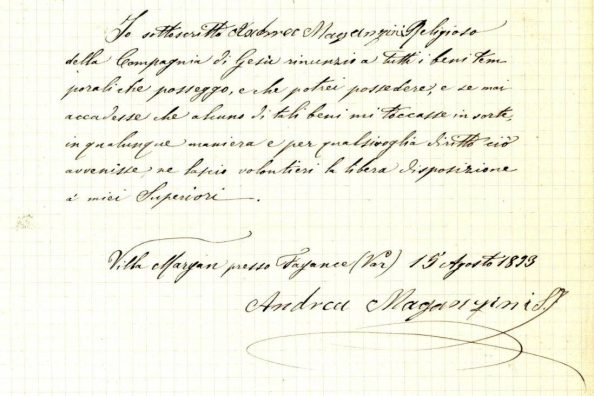 Io sottoscritto Andrea Maganzini Religioso
della Compagnia di Gesù rinunzio a tutti i beni tem
porali che posseggo, e che potrei possedere; e se mai
accadesse che alcuno di tali beni mi toccasse in sorte,
in qualunque maniera e per qualsivoglia diritto ciò
avvenisse, ne lascio volontieri la libera disposizione
a' miei Superiori.
Villa Margan presso Fayence (Var) 15 Agosto 1893
Andrea Maganzini S.J.